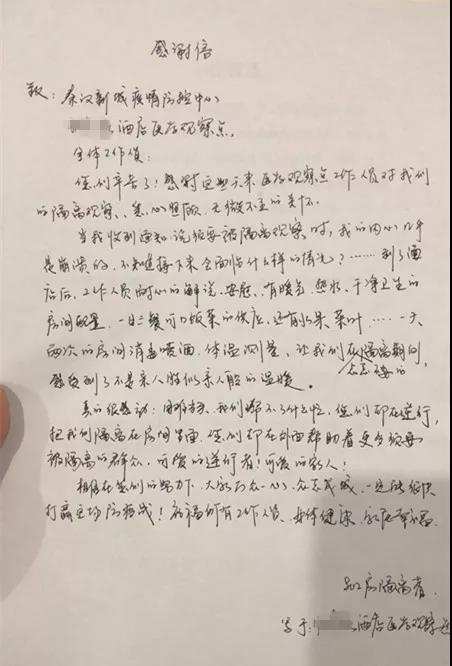 感谢信
致：秦汉新城疫情防控中心
酒店医学观察点
全体工作人员：
您们辛苦了！感谢这些天来医学观察点工作人员对我们
的隔离观察、悉心照顾，无微不至的关怀。
当我收到通知，说须要被隔离观察时，我的内心几乎
是崩溃的，不知道接下来会面临什么样的情况？……到了酒
店后，工作人员耐心的解说、安慰、有暖气、热水、干净卫生的
房间配置，一日三餐可口饭菜的供应，还有水果、菜叶……一天
两次的房间消毒喷洒、体温测量，让我们在隔离期间，
感受到了不是亲人胜似亲人般的温暖。
真的很感动：困难当头，我们帮不了什么忙，您们却在逆行，
把我们隔离在房间里面，您们却在外面帮助着更多须要
被隔离的群众，可赞的逆行者！可爱的家人！
相信在您们的努力下，大家万众一心，众志成城，一定能很快
打赢这场防疫战！祝福所有工作人员，身体健康，家庭幸福。
房隔离者
写于：酒店医学观察点